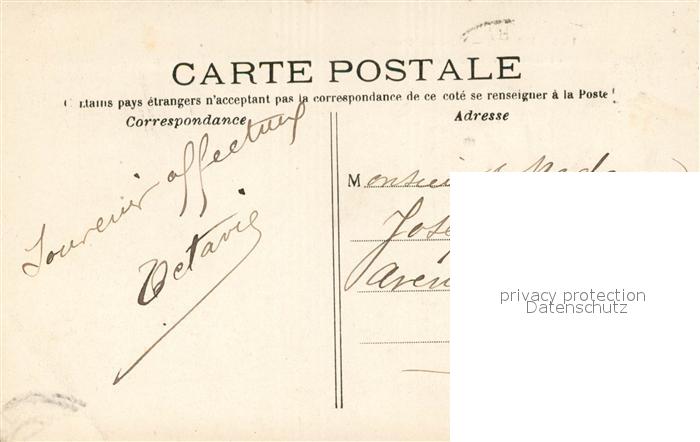 CARTE POSTALE
Certains pays étrangers n'acceptant pas la correspondance de ce coté se renseigner à la Poste
Correspondance
Adresse
Souvenir affectueux
Octavie
Monsieur
José
privacy protection
Datenschutz